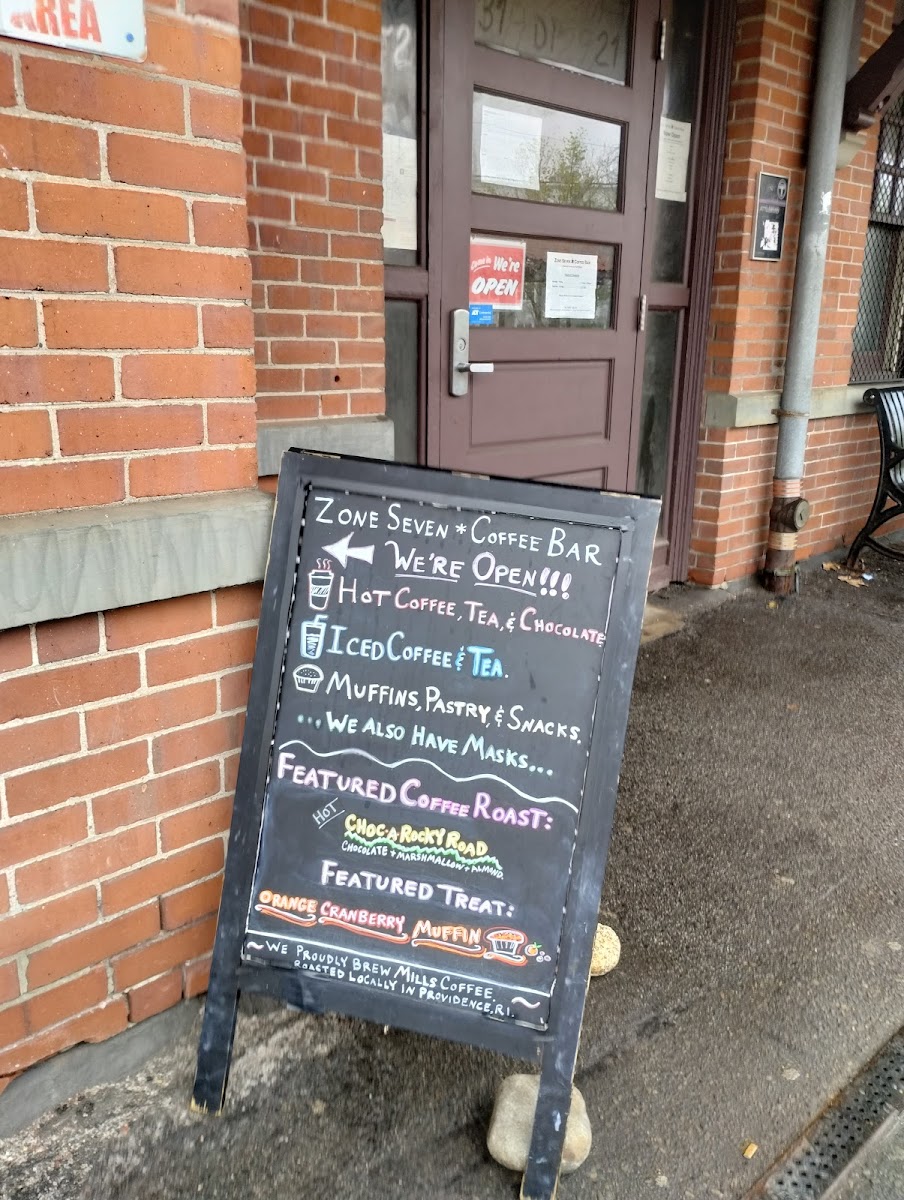 AREA
We're
OPEN
ZONE SEVEN * COFFEE BAR
WE'RE OPEN!!!
HOT COFFEE, TEA, & CHOCOLATE
ICED COFFEE & TEA.
MUFFINS, PASTRY, & SNACKS.
...WE ALSO HAVE MASKS...
FEATURED COFFEE ROAST:
HOT
CHOC-A-ROCKY ROAD
CHOCOLATE + MARSHMALLOW + ALMOND.
FEATURED TREAT:
ORANGE CRANBERRY MUFFIN
~WE PROUDLY BREW MILLS COFFEE.
ROASTED LOCALLY IN PROVIDENCE, RI. ~